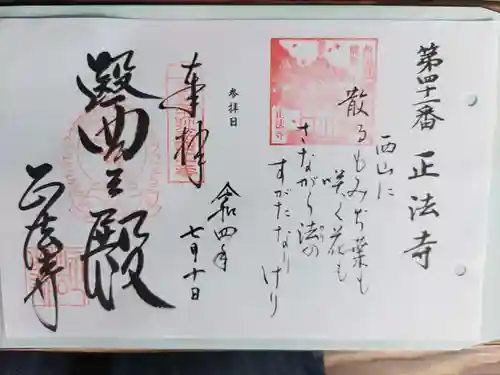 第四十二番 正法寺
西山に
散るもみぢ葉も
咲く花も
さながら法の
すがたなりけり
正法寺
参拝日
令和四年
七月十日
奉拝
醫王殿
正法寺